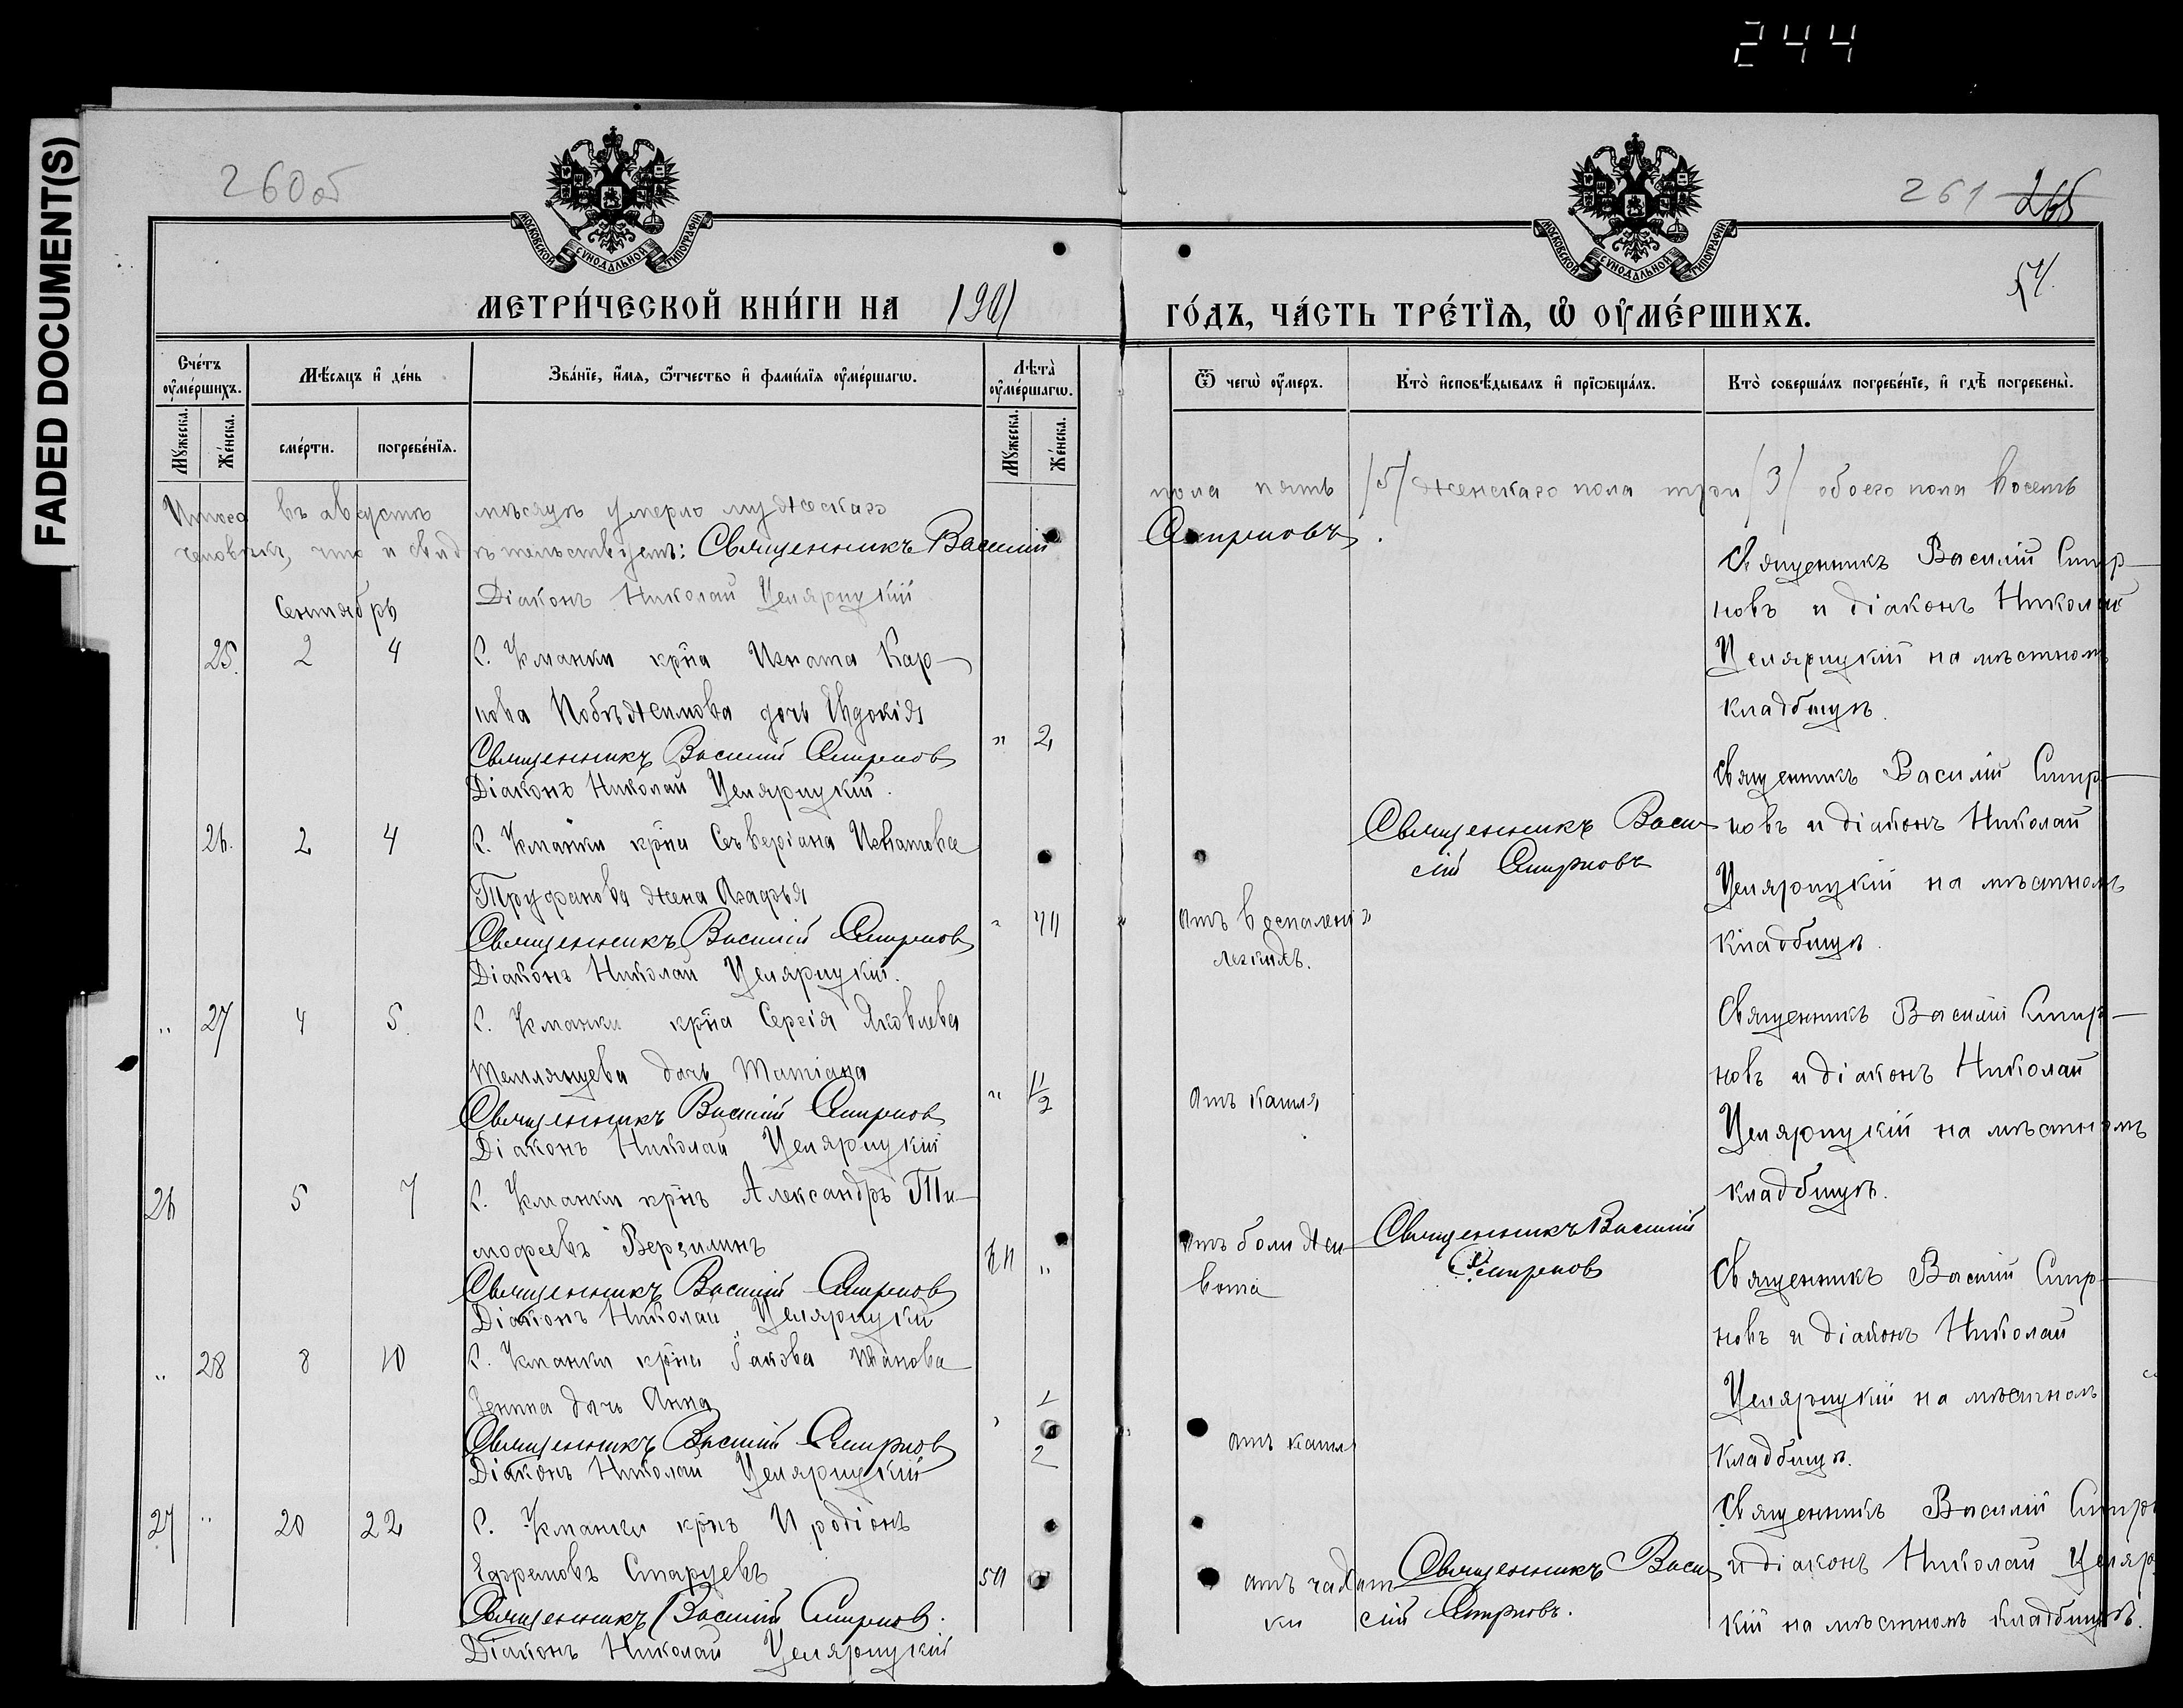 244
FADED DOCUMENT(S)
260об
261 265
54.
МОСКОВСКОЙ СѴНОДАЛЬНОЙ ТИПОГРАФІИ
МОСКОВСКОЙ СѴНОДАЛЬНОЙ ТИПОГРАФІИ
МЕТРИ́ЧЕСКОЙ КНИ́ГИ НА 1901
ГО́ДЪ, ЧА́СТЬ ТРЕ́ТЇѦ, Ѡ҆ ОУ҆МЕ́РШИХЪ.
Сче́тъ оу҆ме́ршихъ.
Мꙋ́жеска.
Же́нска.
Мѣ́сѧцъ и҆ де́нь
сме́рти.
погребе́нїѧ.
Зва́нїе, и҆́мѧ, ѻ҆́тчество и҆ фами́лїѧ оу҆ме́ршагѡ.
Лѣ́та оу҆ме́ршагѡ.
Мꙋ́жеска.
Же́нска.
Ѿ чегѡ̀ оу҆́меръ.
Кто̀ и҆сповѣ́дывалъ и҆ прїѡбща́лъ.
Кто̀ соверша́лъ погребе́нїе, и҆ гдѣ̀ погребены̀.
Итого въ августѣ мѣсяцѣ умерло мужескаго пола пять /5/ женскаго пола три /3/ обоего пола восемь
человѣкъ, что и свидѣтельствуемъ: Священникъ Василій Смирновъ.
Діаконъ Николай Целярицкій
Сентябрь
25. 2 4 С. Укманки кр̃на Игната Кар-
пова Побѣжимова дочь Евдокія " 2
Священникъ Василій Смирновъ
Діаконъ Николай Целярицкій.
Священникъ Василій Смир-
новъ и діаконъ Николай
Целярицкій на мѣстномъ
кладбищѣ.
26. 2 4 С. Укманки кр̃на Северіана Игнатова
Труфанова жена Агафья
Священникъ Василій Смирновъ
Діаконъ Николай Целярицкій.
отъ воспаленія
легкихъ.
Священникъ Васи-
лій Смирновъ
Священникъ Василій Смир-
новъ и діаконъ Николай
Целярицкій на мѣстномъ
кладбищѣ.
" 27 4 5. С. Укманки кр̃на Сергія Яковлева
дочь Татіана
Священникъ Василій Смирновъ
Діаконъ Николай Целярицкій
отъ кашля
Священникъ Василій Смир-
новъ и діаконъ Николай
Целярицкій на мѣстномъ
кладбищѣ.
26 5 7 С. Укманки кр̃нъ Александръ Ти-
мофеевъ Верзилинъ "
Священникъ Василій Смирновъ
Діаконъ Николай Целярицкій
отъ боли жи-
вота
Священникъ Василій
Смирновъ
Священникъ Василій Смир-
новъ и діаконъ Николай
Целярицкій на мѣстномъ
кладбищѣ.
" 28 8 10 С. Укманки кр̃на Іакова
дочь Анна
Священникъ Василій Смирновъ
Діаконъ Николай Целярицкій
отъ кашля
Священникъ Василій Смир
и діаконъ Николай Целяр
кій на мѣстномъ кладбищѣ.
27 " 20 22 С. Укманки кр̃нъ Иродіонъ
Ефремовъ Старцевъ
Священникъ Василій Смирновъ.
Діаконъ Николай Целярицкій
отъ чахот
ки
Священникъ Васи
лій Смирновъ.